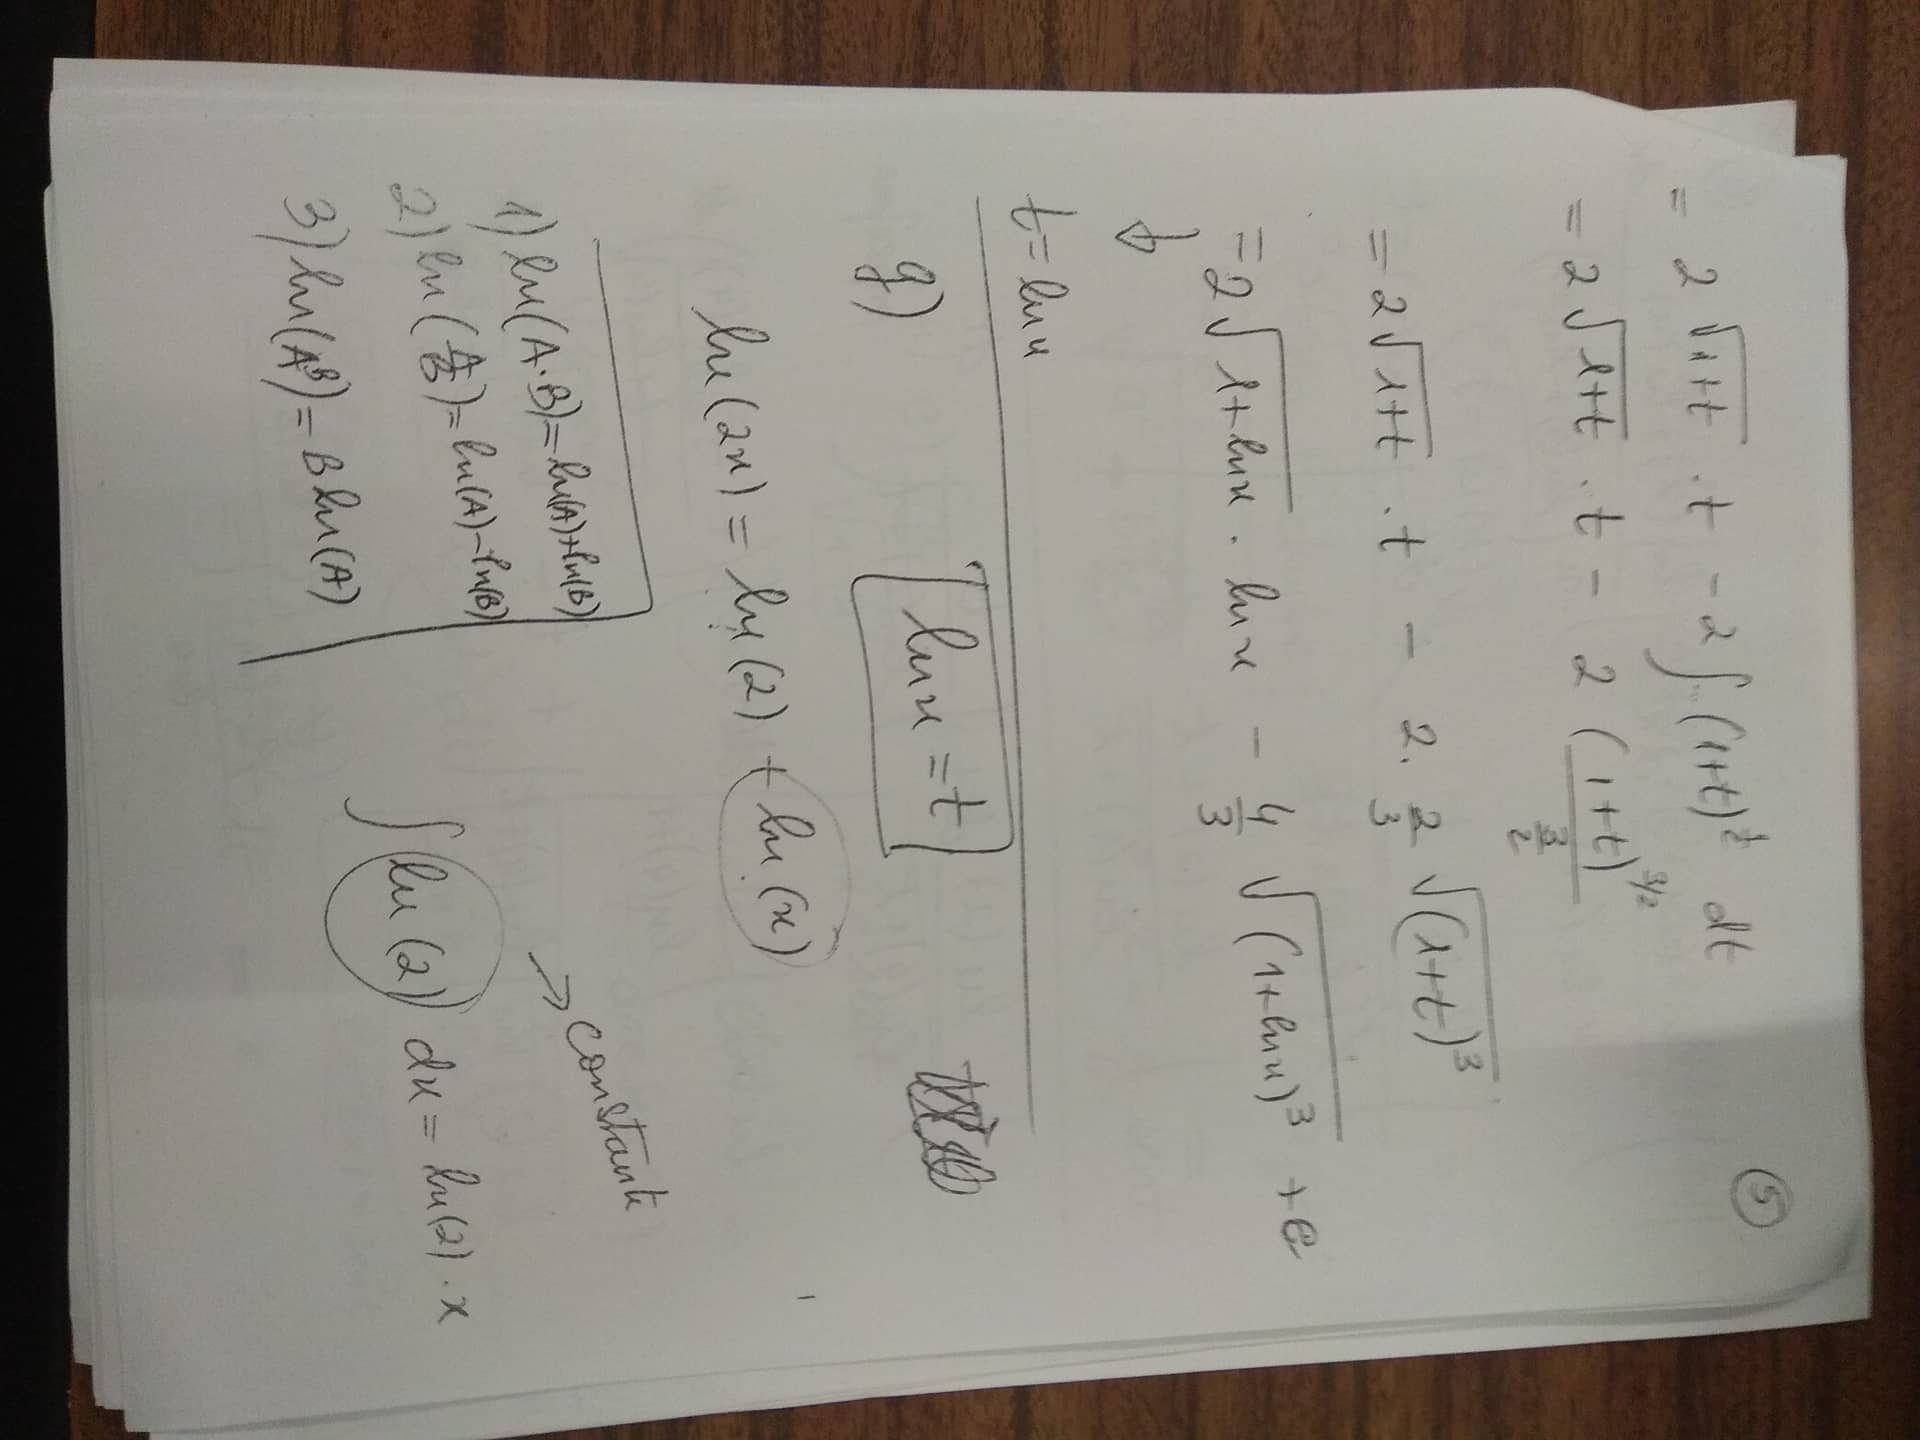 5
= 2 √(1+t) · t - 2 ∫ (1+t)^(1/2) dt
= 2 √(1+t) · t - 2 (1+t)^(3/2) / (3/2)
= 2 √(1+t) · t - 2 · 2/3 √((1+t)^3)
= 2 √(1+ln x) · ln x - 4/3 √((1+ln x)^3) + c
↓
t = ln x
g) ln x = t
ln(2x) = ln(2) + ln(x)
1) ln(A·B) = ln(A)+ln(B)
2) ln(A/B) = ln(A)-ln(B)
3) ln(A^B) = B ln(A)
→ constante
∫ ln(2) dx = ln(2) · x